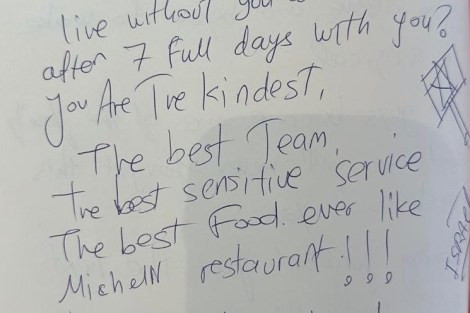 live without you
after 7 full days with you?
you Are The kindest,
The best Team,
The best sensitive service
The best Food. ever like
MichelN restaurant!!!